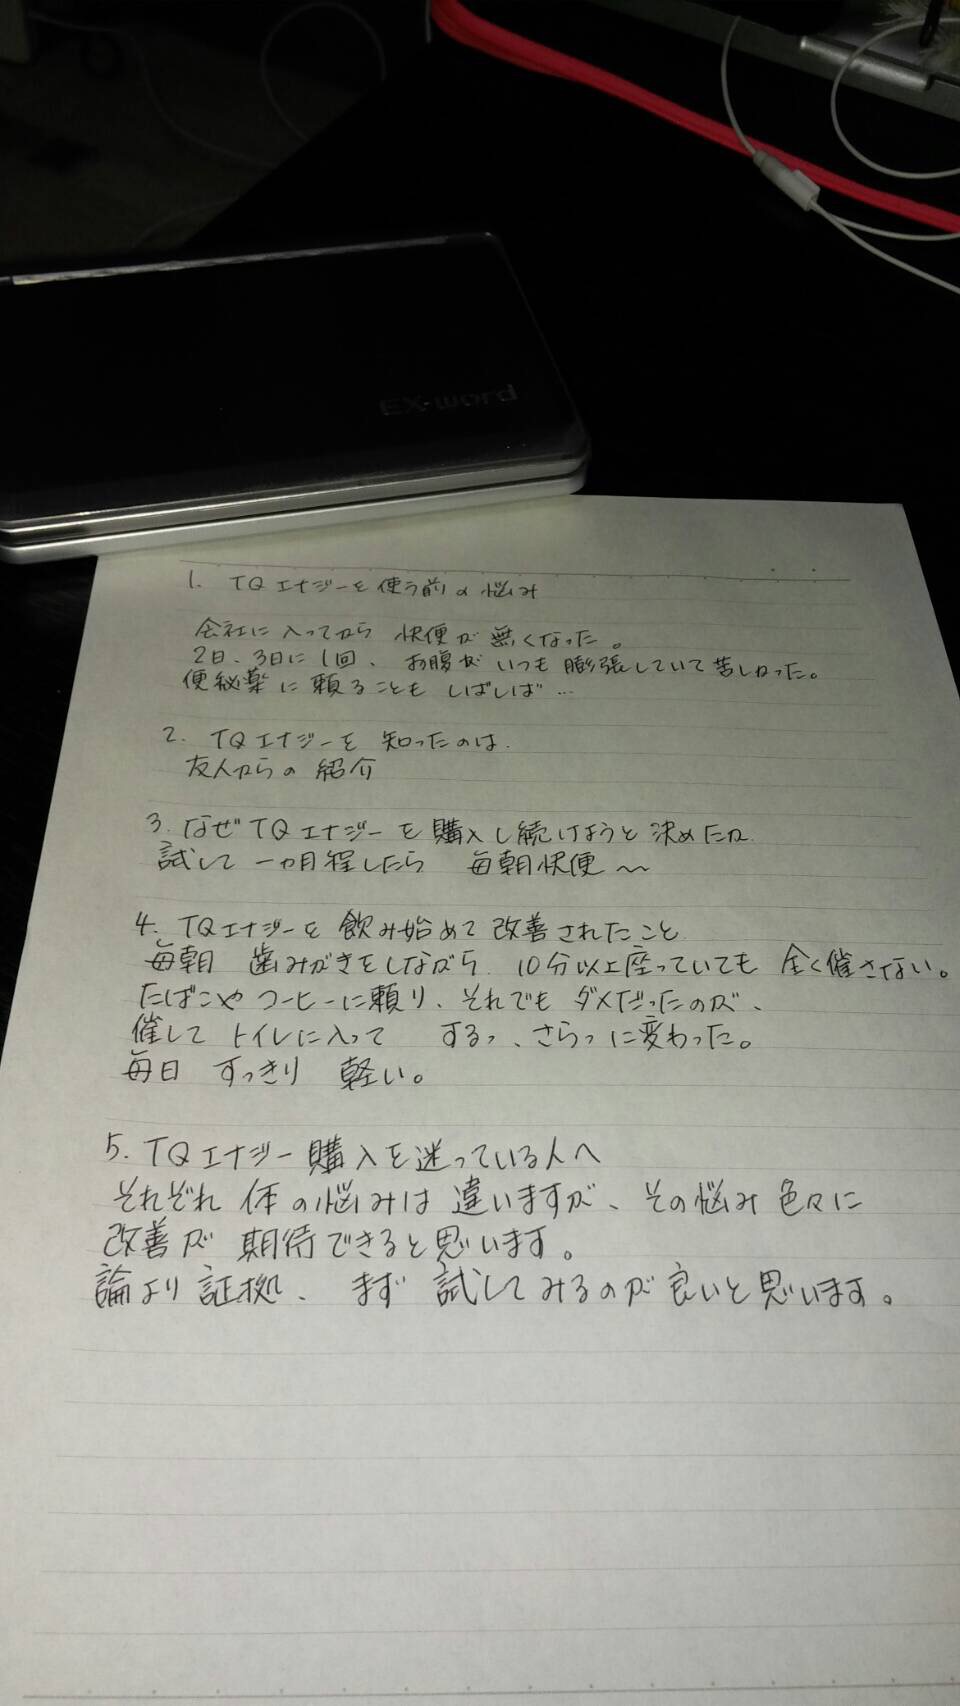 EX-word
1. TQエナジーを使う前の悩み
会社に入ってから 快便が無くなった。
2日、3日に1回、お腹がいつも膨張していて苦しかった。
便秘薬に頼ることもしばしば…
2. TQエナジーを知ったのは.
友人からの紹介
3. なぜTQエナジーを購入し続けようと決めたか
試して一カ月程したら 毎朝快便〜
4. TQエナジーを飲み始めて改善されたこと
毎朝 歯みがきをしながら 10分以上座っていても 全く催さない。
たばこやコーヒーに頼り、それでもダメだったのが、
催してトイレに入って するっ、さらっに変わった。
毎日 すっきり 軽い。
5. TQエナジー購入を迷っている人へ
それぞれ体の悩みは違いますが、その悩み色々に
改善が期待できると思います。
論より証拠、まず試してみるのが良いと思います。